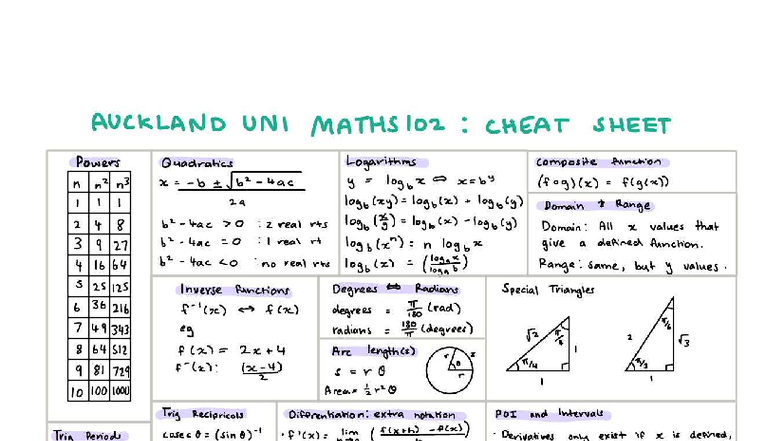 AUCKLAND UNI MATHS102 : CHEAT SHEET
Powers
n n² n³
1 1 1
2 4 8
3 9 27
4 16 64
5 25 125
6 36 216
7 49 343
8 64 512
9 81 729
10 100 1000
Quadratics
x = (-b ± √(b² - 4ac)) / 2a
b² - 4ac > 0 : 2 real rts
b² - 4ac = 0 : 1 real rt
b² - 4ac < 0 : no real rts
Logarithms
y = log_b x ⇔ x = b^y
log_b(xy) = log_b(x) + log_b(y)
log_b(x/y) = log_b(x) - log_b(y)
log_b(x^n) = n log_b x
log_b(x) = (log_a x / log_a b)
Composite function
(f o g)(x) = f(g(x))
Domain + Range
Domain: All x values that
give a defined function.
Range: same, but y values.
Inverse Functions
f⁻¹(x) ↔ f(x)
eg
f(x) = 2x+4
f⁻(x): (x-4)/2
Degrees ⇔ Radians
degrees = π/180 (rad)
radians = 180/π (degrees)
Arc length(s)
s = r θ
Area = ½ r² θ
r s
θ
r
Special Triangles
√2 π/4 1
π/4
1
2 π/6 √3
π/3
1
Trig Period
Trig Recipricols
cosec θ = (sin θ)⁻¹
Diferentiation: extra notation
· f'(x) = lim (f(x+h) - f(x)
POI and Intervals
· Derivatives only exist if x is defined,